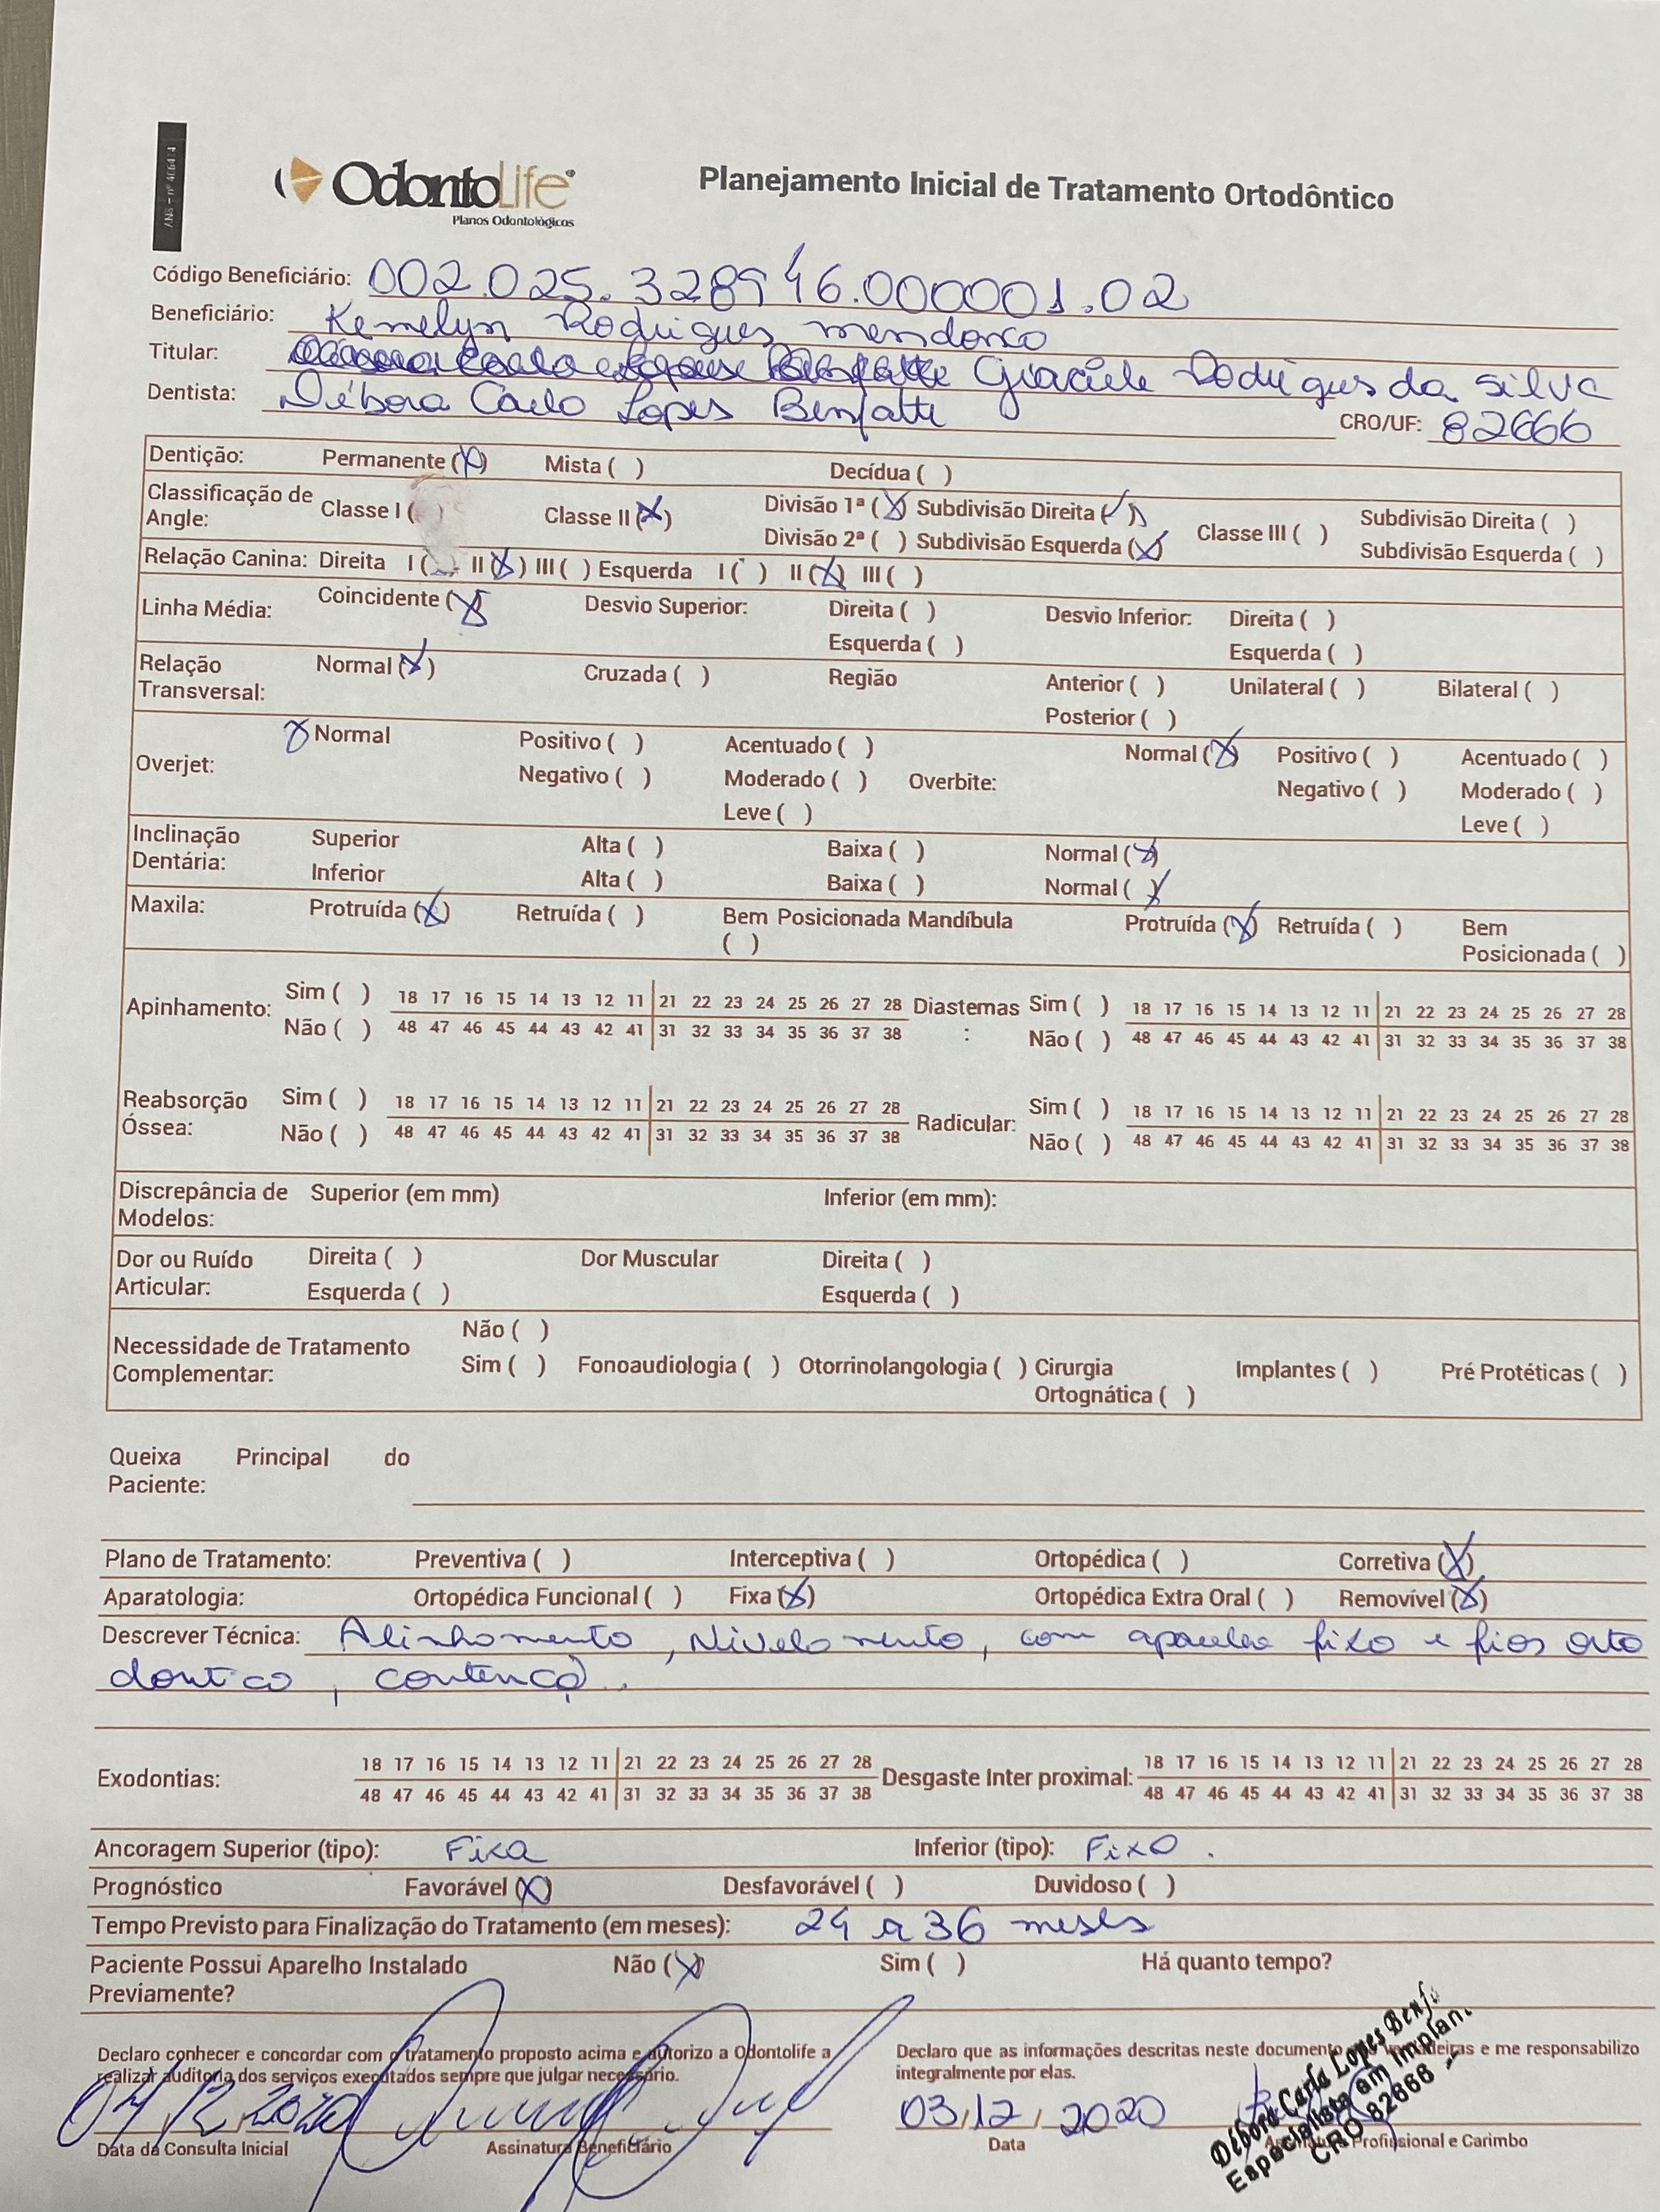 ANS - nº 40641-4
OdontoLife®
Planos Odontológicos
Planejamento Inicial de Tratamento Ortodôntico
Código Beneficiário: 002.025.32894 46.000001.02
Beneficiário: Kemelyn Rodrigues mendonco
Titular: Giaciele Rodrigues da silva
Dentista: Débora Carlo Lopes Benfatti CRO/UF: 82666
Dentição: Permanente (X) Mista ( ) Decídua ( )
Classificação de Angle: Classe I ( ) Classe II (X) Divisão 1ª (X) Subdivisão Direita (X) Classe III ( ) Subdivisão Direita ( )
Divisão 2ª ( ) Subdivisão Esquerda (X) Subdivisão Esquerda ( )
Relação Canina: Direita I ( ) II (X) III ( ) Esquerda I ( ) II (X) III ( )
Linha Média: Coincidente (X) Desvio Superior: Direita ( ) Desvio Inferior: Direita ( )
Esquerda ( ) Esquerda ( )
Relação Transversal: Normal (X) Cruzada ( ) Região Anterior ( ) Unilateral ( ) Bilateral ( )
Posterior ( )
Overjet: X Normal Positivo ( ) Acentuado ( ) Overbite: Normal (X) Positivo ( ) Acentuado ( )
Negativo ( ) Moderado ( ) Negativo ( ) Moderado ( )
Leve ( ) Leve ( )
Inclinação Dentária: Superior Alta ( ) Baixa ( ) Normal (X)
Inferior Alta ( ) Baixa ( ) Normal (X)
Maxila: Protruída (X) Retruída ( ) Bem Posicionada ( ) Mandíbula Protruída (X) Retruída ( ) Bem Posicionada ( )
Apinhamento: Sim ( ) 18 17 16 15 14 13 12 11 21 22 23 24 25 26 27 28 Diastemas: Sim ( ) 18 17 16 15 14 13 12 11 21 22 23 24 25 26 27 28
Não ( ) 48 47 46 45 44 43 42 41 31 32 33 34 35 36 37 38 Não ( ) 48 47 46 45 44 43 42 41 31 32 33 34 35 36 37 38
Reabsorção Óssea: Sim ( ) 18 17 16 15 14 13 12 11 21 22 23 24 25 26 27 28 Radicular: Sim ( ) 18 17 16 15 14 13 12 11 21 22 23 24 25 26 27 28
Não ( ) 48 47 46 45 44 43 42 41 31 32 33 34 35 36 37 38 Não ( ) 48 47 46 45 44 43 42 41 31 32 33 34 35 36 37 38
Discrepância de Modelos: Superior (em mm) Inferior (em mm):
Dor ou Ruído Articular: Direita ( ) Dor Muscular Direita ( )
Esquerda ( ) Esquerda ( )
Necessidade de Tratamento Complementar: Não ( )
Sim ( ) Fonoaudiologia ( ) Otorrinolangologia ( ) Cirurgia Ortognática ( ) Implantes ( ) Pré Protéticas ( )
Queixa Principal do
Paciente:
Plano de Tratamento: Preventiva ( ) Interceptiva ( ) Ortopédica ( ) Corretiva (X)
Aparatologia: Ortopédica Funcional ( ) Fixa (X) Ortopédica Extra Oral ( ) Removível (X)
Descrever Técnica: Alinhomento, Nivelomento, com aparelho fixo e fios orto
dontico, contençõ.
Exodontias: 18 17 16 15 14 13 12 11 21 22 23 24 25 26 27 28 Desgaste Inter proximal: 18 17 16 15 14 13 12 11 21 22 23 24 25 26 27 28
48 47 46 45 44 43 42 41 31 32 33 34 35 36 37 38 48 47 46 45 44 43 42 41 31 32 33 34 35 36 37 38
Ancoragem Superior (tipo): Fixa Inferior (tipo): Fixo.
Prognóstico Favorável (X) Desfavorável ( ) Duvidoso ( )
Tempo Previsto para Finalização do Tratamento (em meses): 24 a 36 meses
Paciente Possui Aparelho Instalado Não (X) Sim ( ) Há quanto tempo?
Previamente?
Declaro conhecer e concordar com o tratamento proposto acima e autorizo a Odontolife a
realizar auditoria dos serviços executados sempre que julgar necessário.
04/12/2020
Data da Consulta Inicial Assinatura Beneficiário
Declaro que as informações descritas neste documento são verdadeiras e me responsabilizo
integralmente por elas.
03/12/2020
Data Assinatura Profissional e Carimbo
Débora Carla Lopes Benf.
Especialista em Implan.
CRO 82666